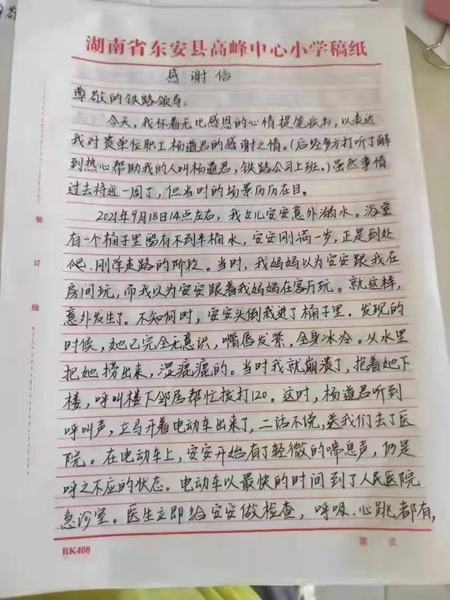 湖南省东安县高峰中心小学稿纸
感谢信
尊敬的铁路领导:
今天,我怀着无比感恩的心情提笔疾书,以表达
我对贵单位职工杨道君的感谢之情。(后经多方打听了解
到热心帮助我的人叫杨道君,铁路公司上班。)虽然事情
过去将近一周了,但当时的场景历历在目。
2021年9月18日14点左右,我女儿安安意外溺水。浴室
有一个桶子里留有不到半桶水,安安刚满一岁,正是到处
爬、刚学走路的阶段。当时,我妈妈以为安安跟我在
房间玩,而我以为安安跟着我妈妈在客厅玩。就这样,
意外发生了。不知何时,安安头倒栽进了桶子里,发现的
时候,她已完全无意识,嘴唇发紫,全身冰冷。从水里
把她捞出来,湿漉漉的。当时我就崩溃了,抱着她下
楼,呼叫楼下邻居帮忙拨打120。这时,杨道君听到
呼叫声,立马开着电动车出来了,二话不说,送我们去了医
院。在电动车上,安安开始有了轻微的喘息声,仍是
呼之不应的状态。电动车以最快的时间到了人民医院
急诊室。医生立即给安安做检查,呼吸、心跳都有,
装订线
RK408
第 页